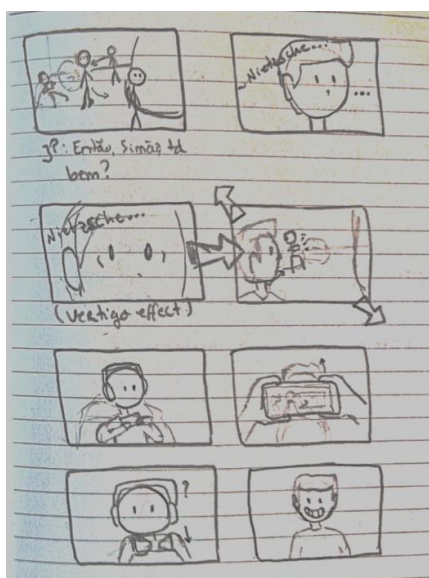 Nietzsche...
...
JP: Então, Simão, td
bem?
Nietzsche...
(vertigo effect)
?